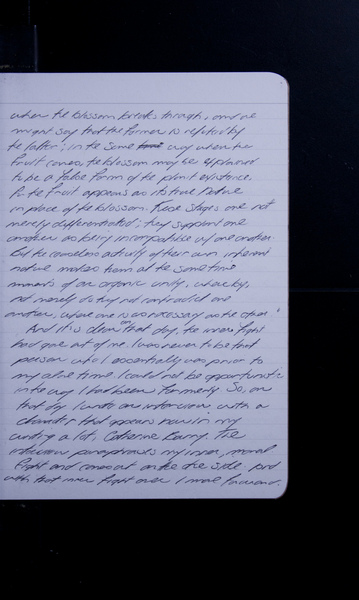 when the blossom breaks through, and we
might say that the former is refuted by
the latter; in the same way when the
fruit comes, the blossom may be explained
to be a false form of the plant's existence.
for the fruit appears as its true nature
in place of the blossom. These stages are not
merely differentiated; they supplant one
another as being incompatible w/ one another.
But the ceaseless activity of their own inherent
nature makes them at the same time
moments of an organic unity, whereby,
not merely do they not contradict one
another, where one is as necessary as the other
And it is clear on that day, the inner fight
had gone out of me. I was never to be that
person who I essentially was prior to
my time. I could not be opportunistic
in the way I had been formerly. So, on
that day I wrote an interview, with a
character that appears now in my
writing a lot, Catherine. The
interview paraphrases my inner, moral
fight and comes out on the side, and
with that inner fight over I move forward.